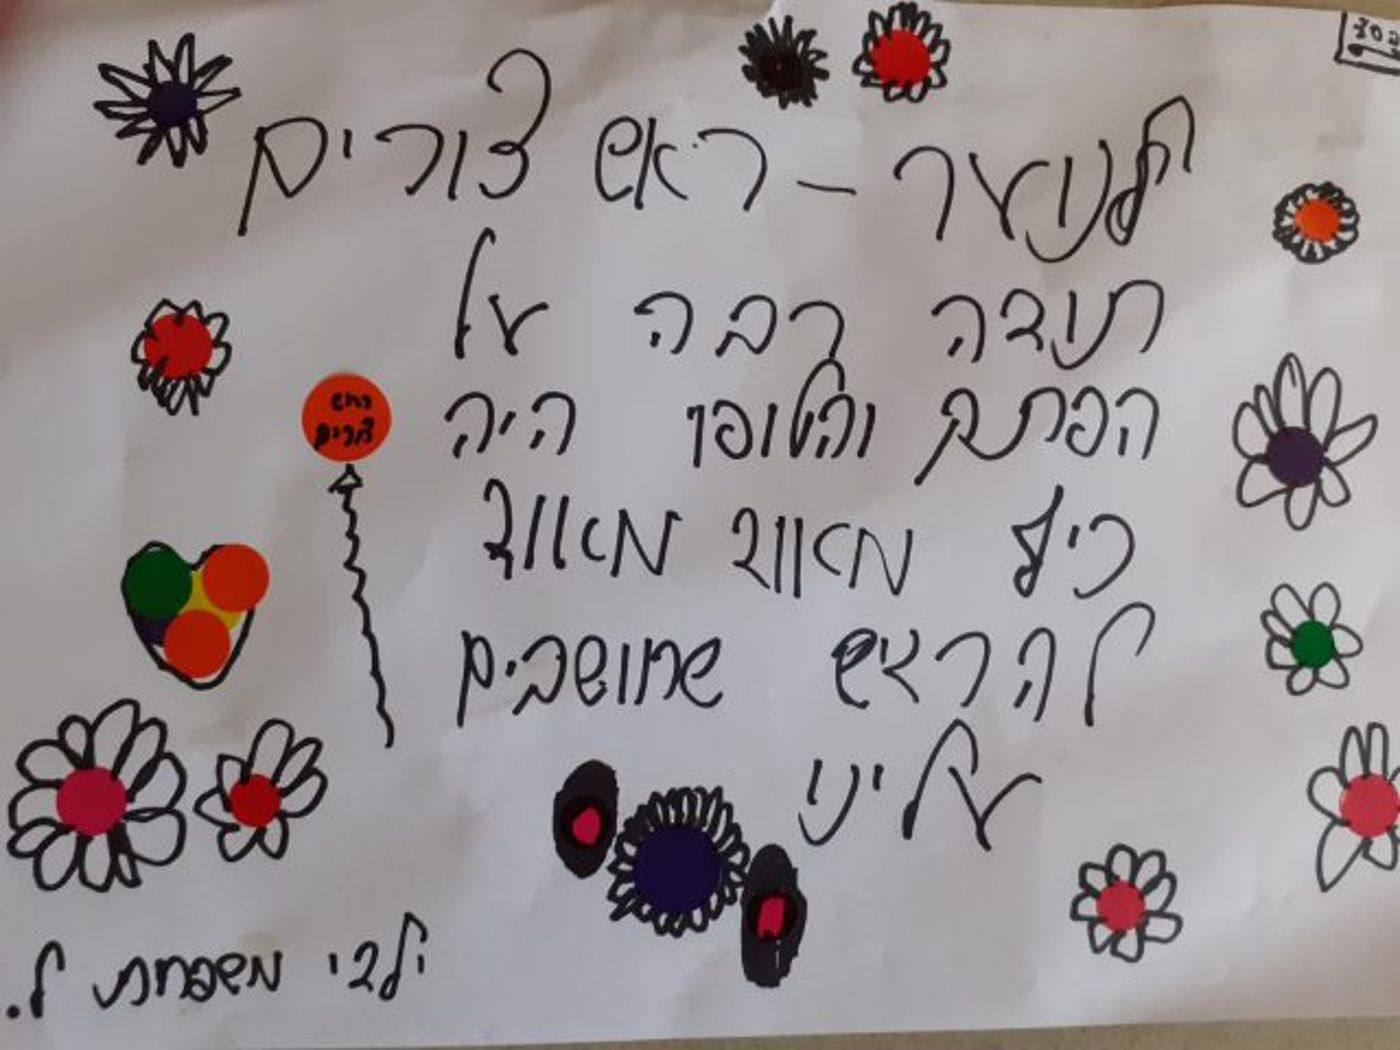 לנוער - ראש צורים
תודה רבה על
הפתק היה
כיף מאוד מאוד
להרגיש שחושבים
עלינו
ראש
צורים
ילדי משפחת ל.